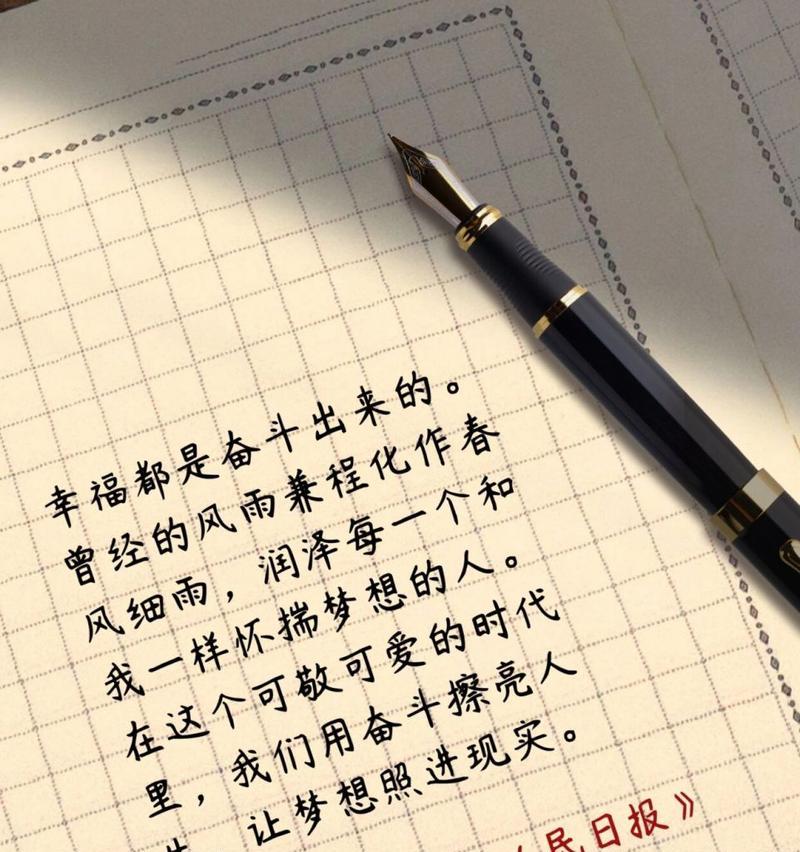 幸福都是奋斗出来的。
曾经的风雨兼程化作春
风细雨，润泽每一个和
我一样怀揣梦想的人。
在这个可敬可爱的时代
里，我们用奋斗擦亮人
让梦想照进现实。
民日报》